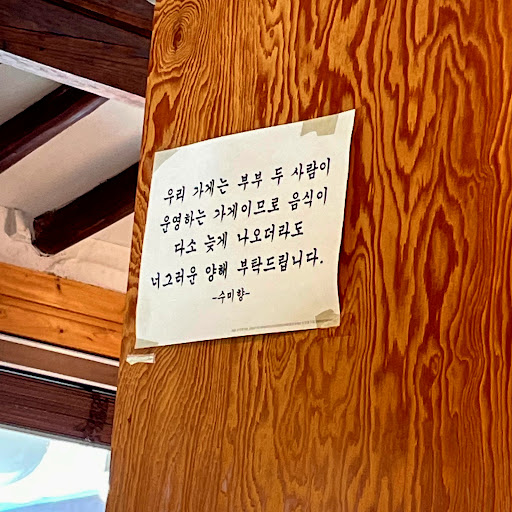 우리 가게는 부부 두 사람이
운영하는 가게이므로 음식이
다소 늦게 나오더라도
너그러운 양해 부탁드립니다.
-수미향-